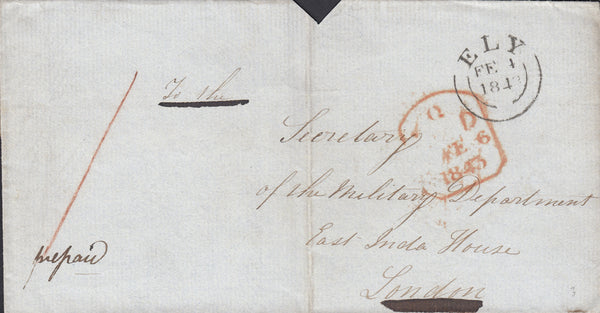 ELY
FE 4
1843
To the
Q
FE 6
1843
Secretary
of the Military Department
East Inda House
London
prepaid
3